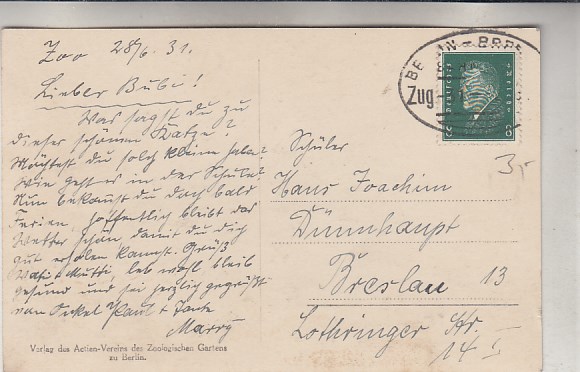 Zoo 28/6.31.
Lieber Bubi!
Was sagst du zu
dieser schönen Katze?
Möchtest du solch kleine haben?
Wie geht es in der Schule?
Nun bekommst du doch bald
Ferien, hoffentlich bleibt das
Wetter schön damit du dich
gut erholen kannst. Grüß
Vati + Mutti, leb wohl bleib
gesund und sei herzlich gegrüßt
von Onkel Paul + Tante
Marry
Verlag des Actien-Vereins des Zoologischen Gartens
zu Berlin.
BERLIN - BRE
Zug
8 8
3,-
Schüler
Hans Joachim
Dünnhaupt
Breslau 13
Lothringer Str.
14 I